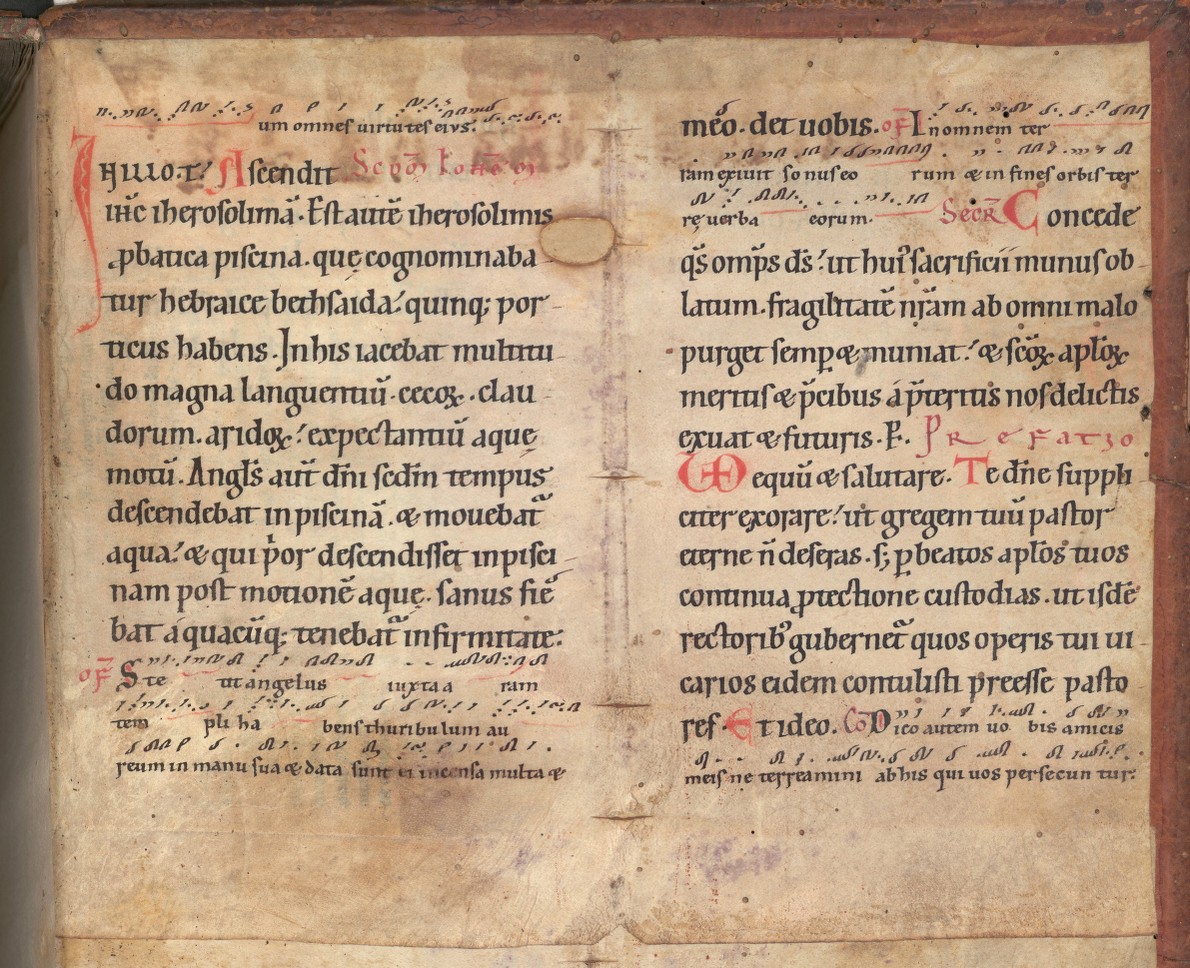 um omnes uirtutes eius.
IN ILLO.T. Ascendit Scdm Iohem
ihc iherosolimā. Est autē iherosolimis
ꝓbatica piscina. quę cognominaba
tur hebraice bethsaida. quinq; por
ticus habens. In his iacebat multitu
do magna languentiū. cecoꝝ. clau
dorum. aridoꝝ. expectantiū aquę
motū. Angls aut dni scdm tempus
descendebat in piscinā. & mouebatᷓ
aqua. & qui pͥor descendisset in pisci
nam post motionē aquę. sanus fie
bat a quacūq; tenebatᷓ infirmitate.
of Ste tit angelus iuxta a ram
tem pli ha bens thuribulum au
reum in manu sua & data sunt ei incensa multa &
meo. det uobis. of In omnem ter
ram exiuit so nus eo rum & in fines orbis ter
rę uerba eorum. Secr̄ Concede
qs̄ omp̄s ds̄. ut hui' sacrificii munus ob
latum. fragilitatē nrām ab omni malo
purget semꝑ & muniat. & scōꝝ aplōꝝ
meritis & p̄cibus á p̄teritis nos delictis
exuat & futuris. P. Prefatio
VD equū & salutare. Te dn̄e suppli
citer exorare. ut gregem tuū pastor
eterne n̄ deseras. s; ꝑ beatos aplōs tuos
continua ꝓtectione custodias. ut isdē
rectorib' gubernetᷓ quos operis tui ui
carios eidem contulisti p̄reesse pasto
res. Et ideo. Co Dico autem uo bis amicis
meis ne terreamini ab his qui uos persecun tur.